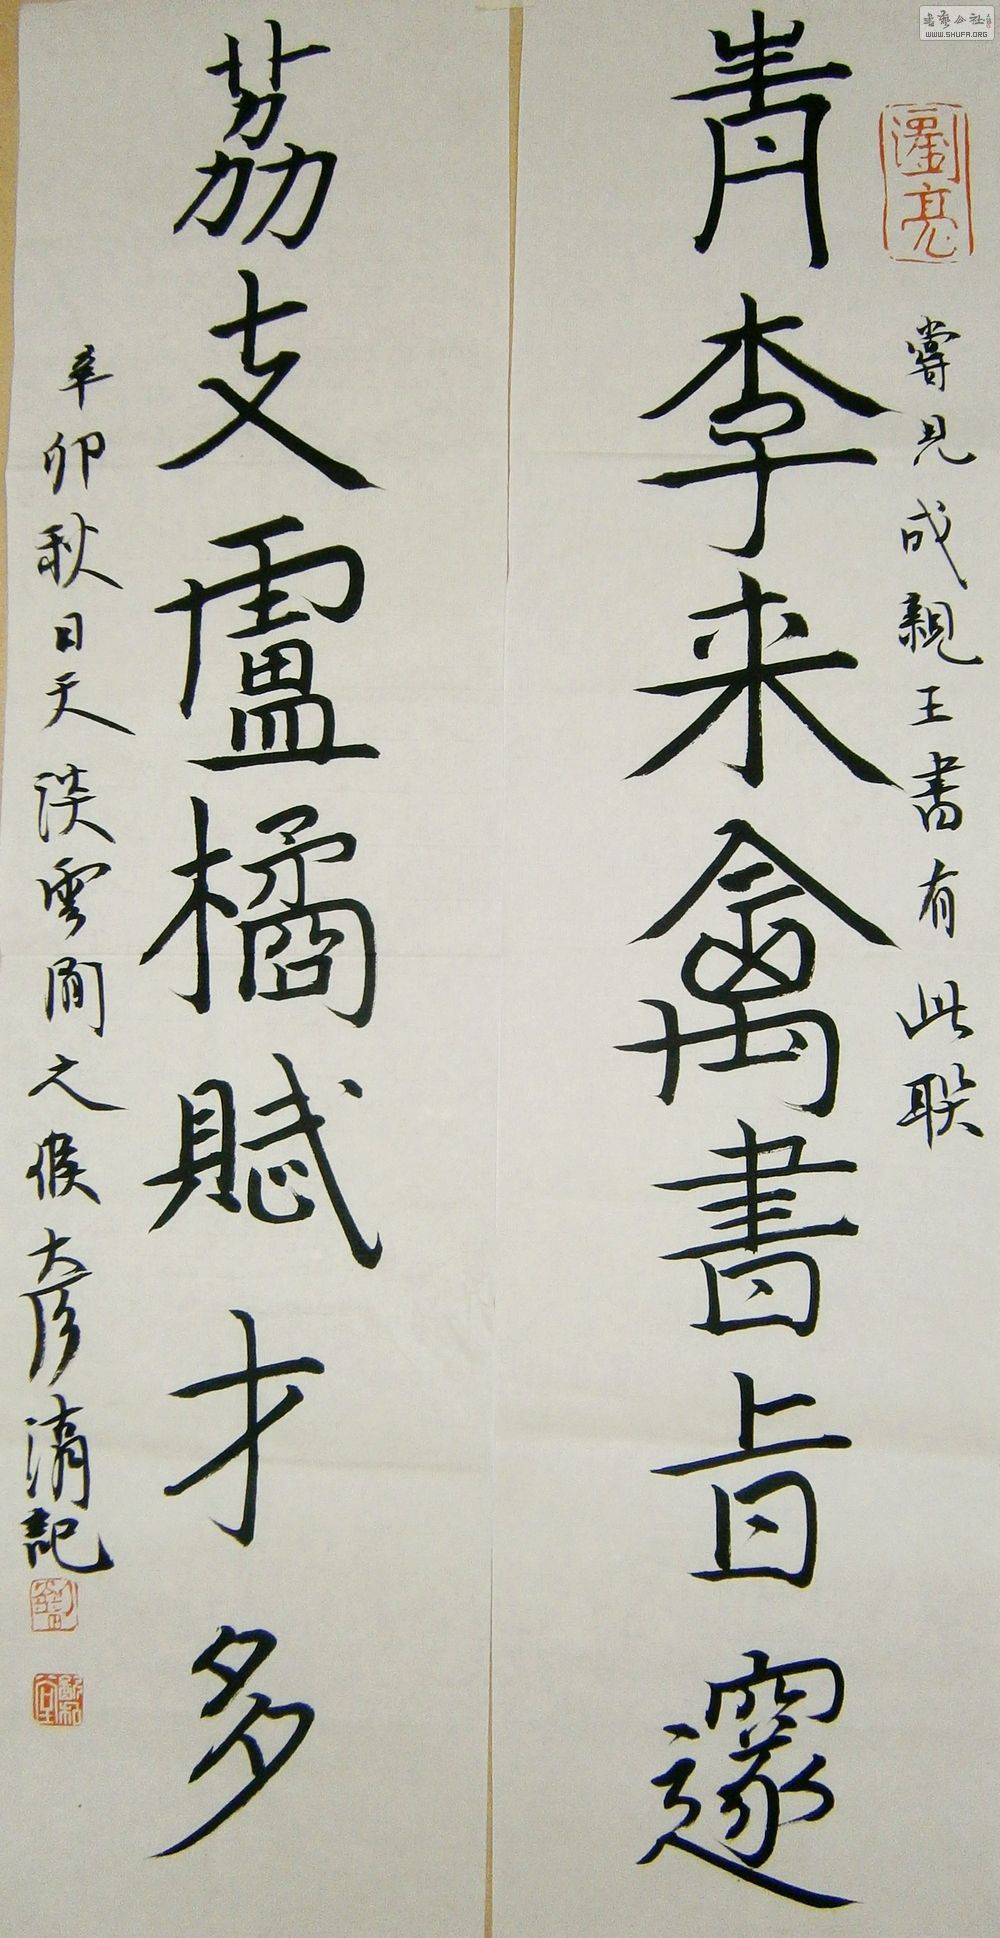 書藝公社
WWW.SHUFA.ORG
劉亮
嘗見成親王書有此联
青李来禽書旨邃
荔支盧橘賦才多
辛卯秋日天淡雲閒之候大彦滴記